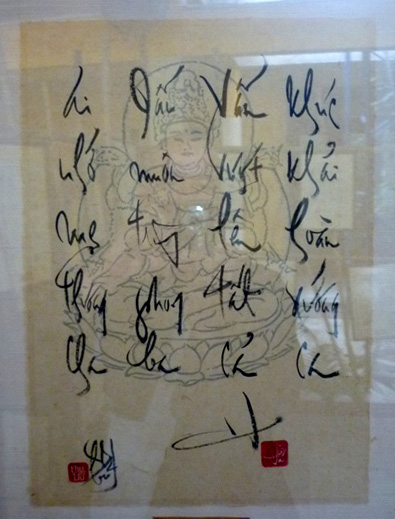 Ai nhớ mẹ thương cha
Dẫu muôn trùng phong ba
Vẫn vượt lên tất cả
Khúc khải hoàn xướng ca